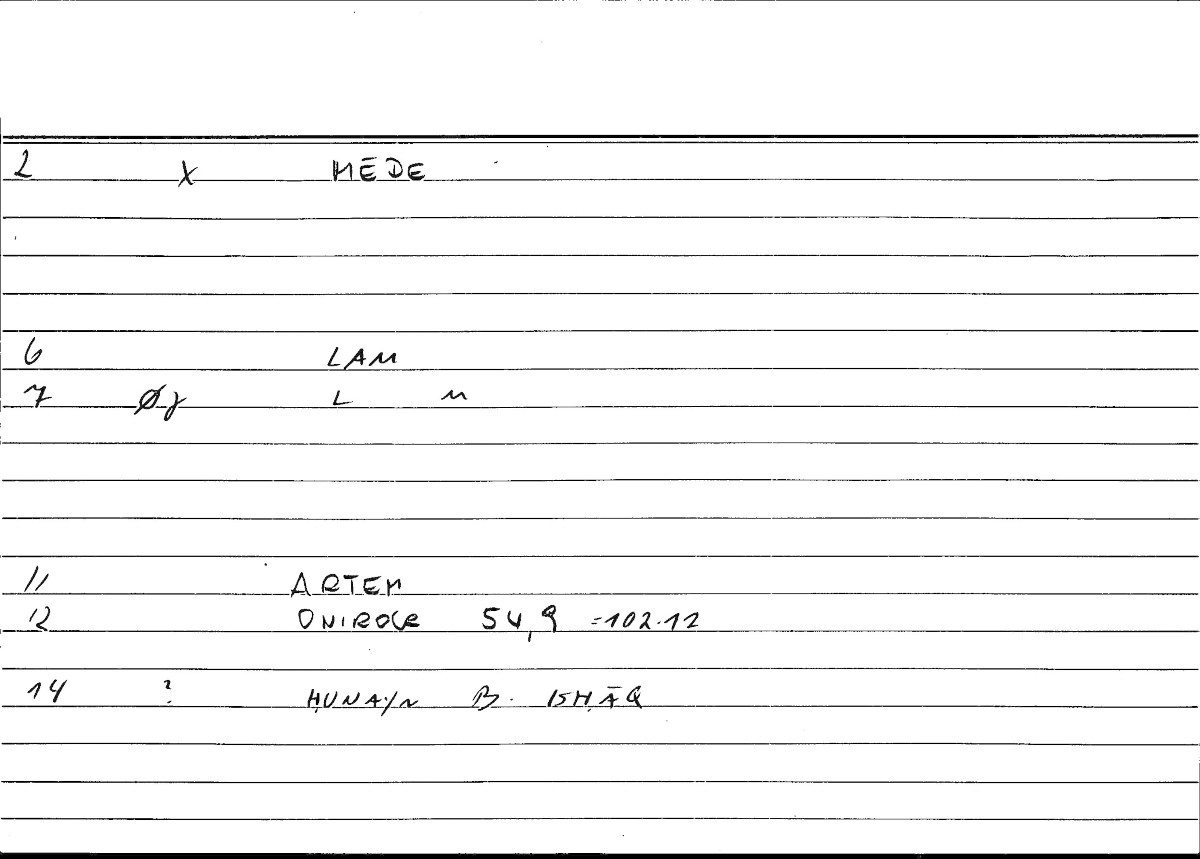 2 X MĒDE
6 LAM
7 L M
11 ARTEM
12 ONIROCR 54,9 =102.12
14 ? ḤUNAYN B. ISḤĀQ